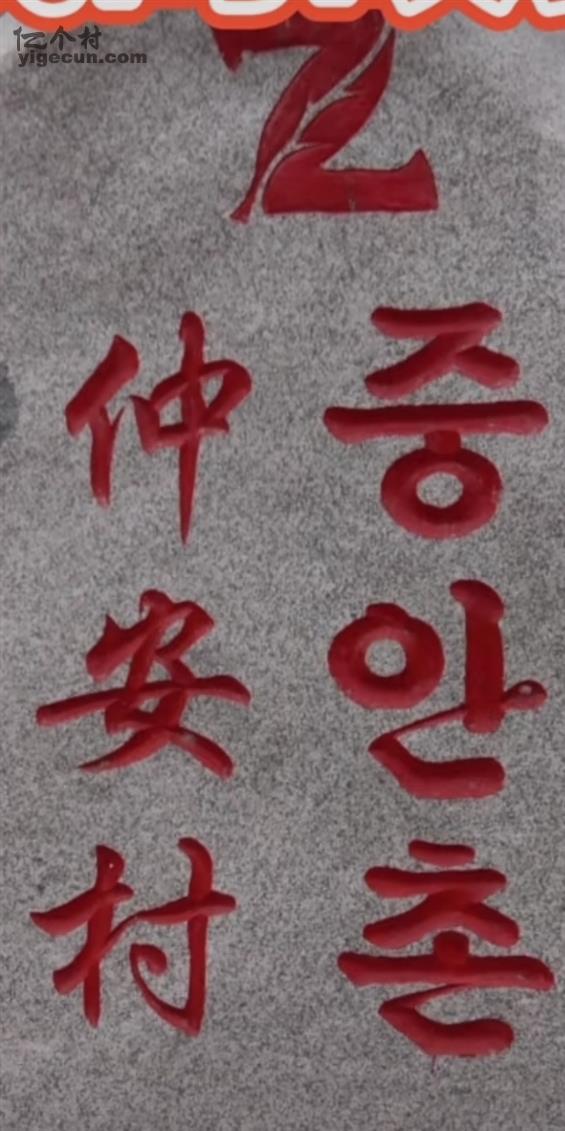 亿个村
yigecun.com
중안촌
仲安村